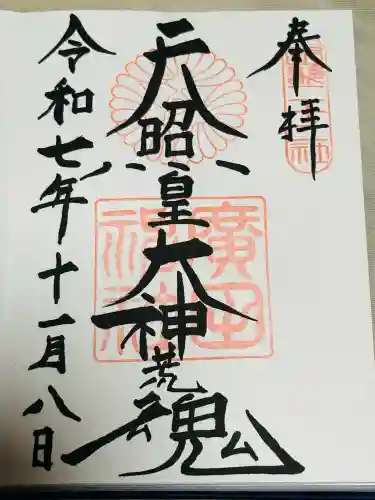 奉拝
天照皇大神荒魂
廣田神社
令和七年十一月八日